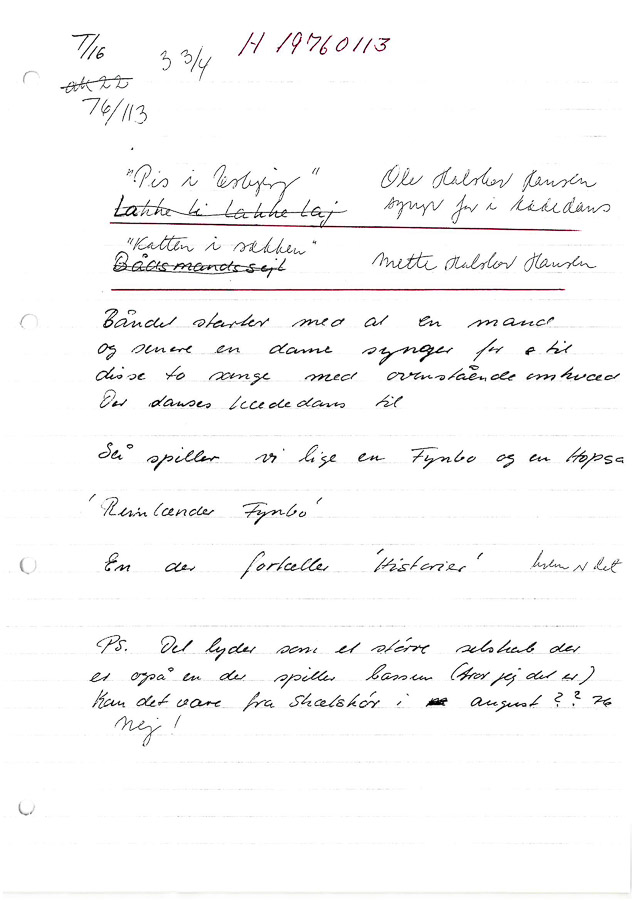 T/16 3 3/4 H 19760113
ak 22
76/113
"Pis i " Ole Halskov Hansen
Lakke li lakke laj synger for i kædedans
"Katten i sækken"
Bådsmands sejl Mette Halskov Hansen
Båndet starter med at en mand
og senere en dame synger for til
disse to sange med ovenstående omkvæd
Der danses kædedans til
Så spiller vi lige en Fynbo og en Hopsa
'Reinlænder Fynbo'
En der fortæller 'Historier'
Ps. Det lyder som et større selskab der
er også en der spiller bassun (tror jeg det er)
Kan det være fra Skælskør i august ?? 76
Nej!